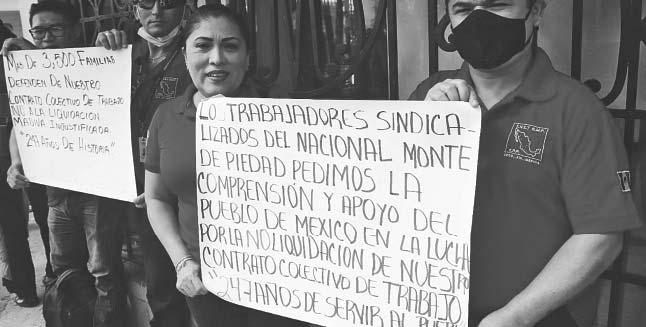 MAS DE 3,500 FAMILIAS
DEFENDEN DE NUESTRO
CONTRATO COLECTIVO DE TRABAJO
NO A LA LIQUIDACION
MASIVA INJUSTIFICADA
"247 AÑOS DE HISTORIA"
LO TRABAJADORES SINDICA-
LIZADOS DEL NACIONAL MONTE
DE PIEDAD PEDIMOS LA
COMPRENSIÓN Y APOYO DEL
PUEBLO DE MEXICO EN LA LUCHA
POR LA NO LIQUIDACION DE NUESTRO
CONTRATO COLECTIVO DE TRABAJO
"247 AÑOS DE SERVIR AL PUEBLO